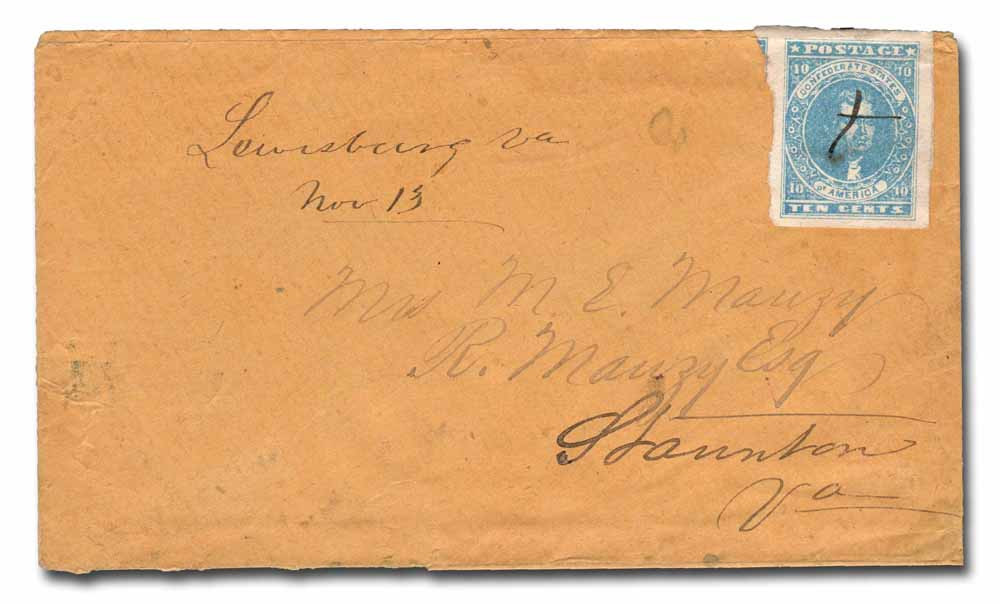 ★ POSTAGE ★
10 10
CONFEDERATE STATES
OF AMERICA
10 10
TEN CENTS
Lewisburg Va
Nov 13
Mrs M. E. Mauzy
R. Mauzy Esq
Staunton
Va